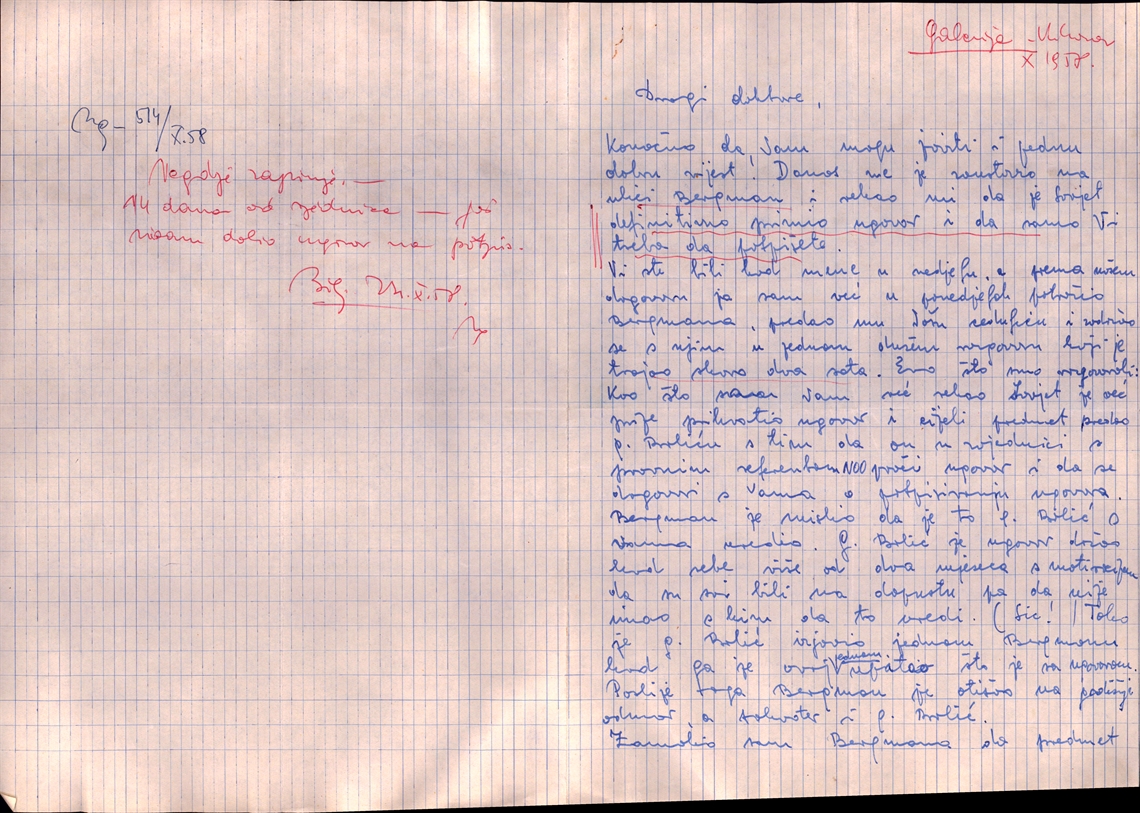 Mg - 514/X.58
Negdje zapinje. —
14 dana od zajednice — još
nisam dobio ugovor na potpis.
Bilj. 24.X.58.
Mg
Galerija
X 1958.
Dragi doktore,
Konačno da Vam mogu javiti i jednu
dobru vijest! Danas me je zaustavio na
ulici Bergman i rekao mi da je Savjet
definitivno primio ugovor i da samo Vi
treba da potpišete.
Vi ste bili kod mene u nedjelju, a prema našem
dogovoru ja sam već u ponedjeljak potražio
Bergmana, predao mu Vašu i zadržao
se s njim u jednom dužem razgovoru koji je
trajao skoro dva sata. Evo što smo razgovarali:
Kao što sam Vam već rekao Savjet je već
prije prihvatio ugovor i cijeli predmet predao
g. Brliću s tim da on u zajednici s
pravnim referentom NOO prouči ugovor i da se
dogovori s Vama o potpisivanju ugovora.
Bergman je mislio da je to g. Brlić s
Vama uredio. G. Brlić je ugovor držao
kod sebe više od dva mjeseca s motivacijom
da su svi bili na dopustu pa da nije
imao s kim da to uredi. (Sic!) Tako
je g. Brlić izjavio jednom Bergmanu
kad ga je ovaj jednom upitao što je sa ugovorom.
Poslije toga Bergman je otišao na godišnji
odmor, a također i g. Brlić.
Zamolio sam Bergmana da predmet